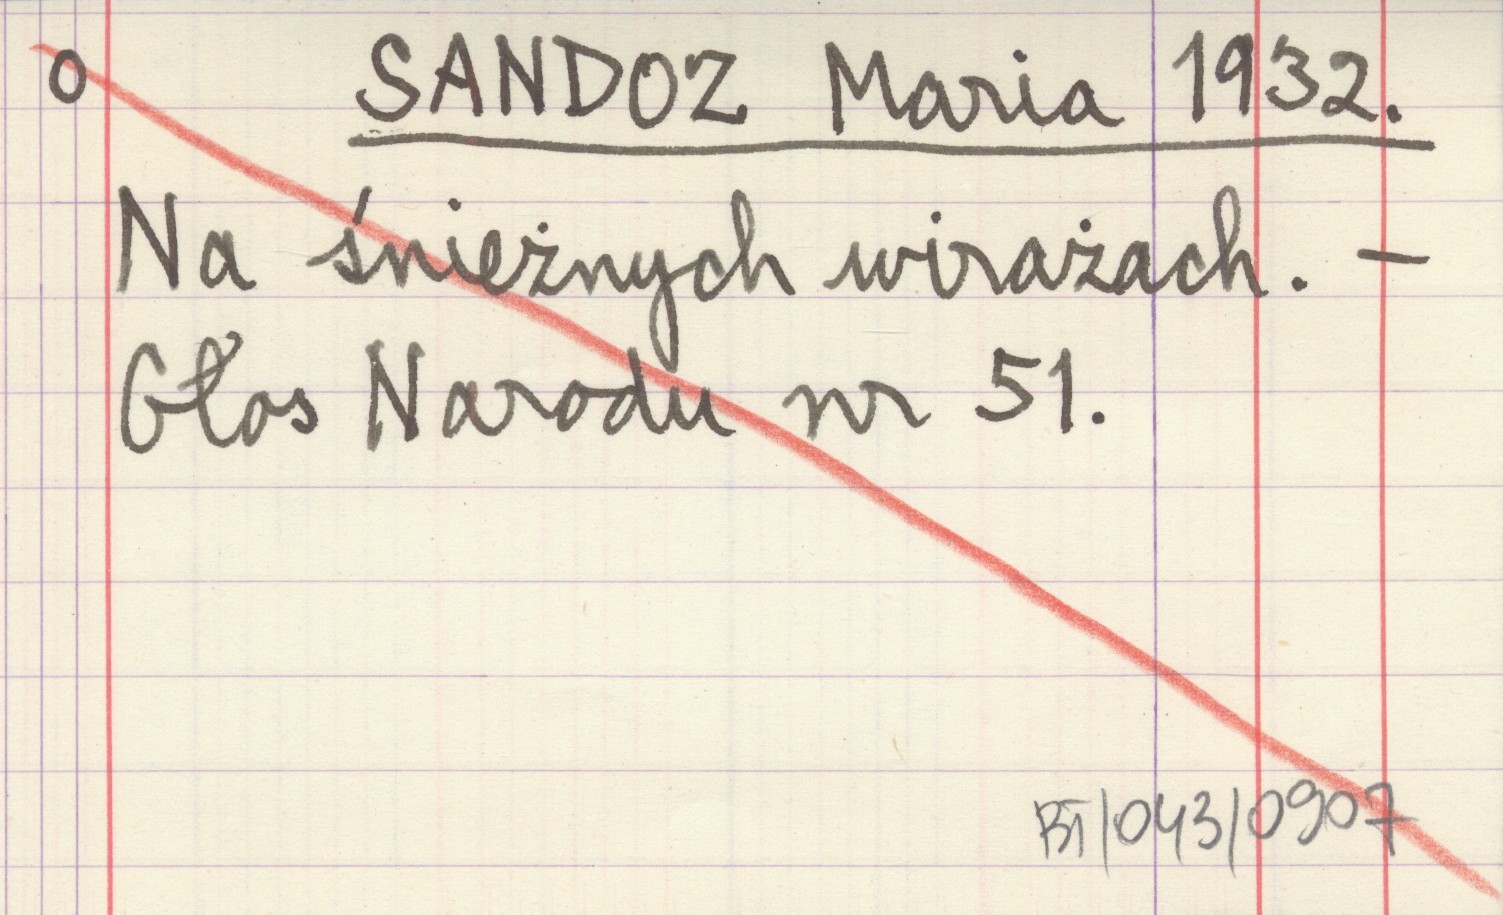 o SANDOZ Maria 1932.
Na śnieżnych wirażach. –
Głos Narodu nr 51.
BT/043/0907